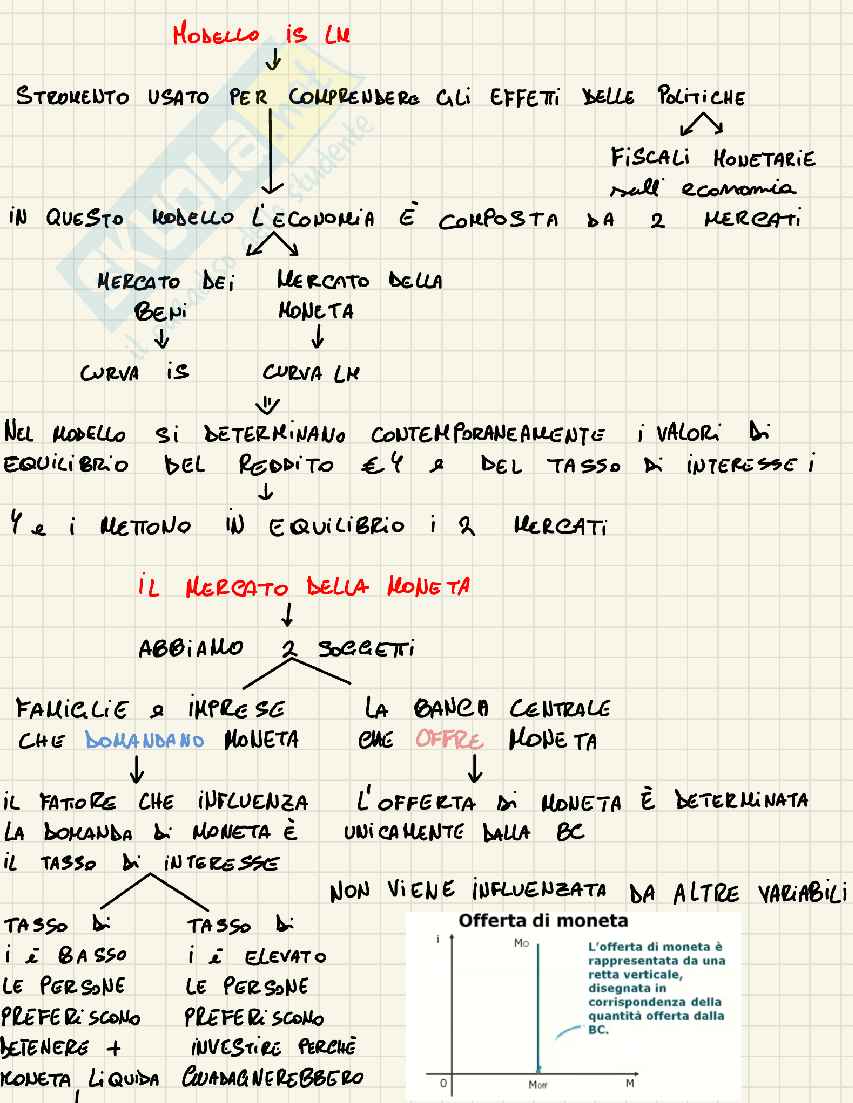 MODELLO IS LM
STROMENTO USATO PER COMPRENDERE GLI EFFETTI DELLE POLITICHE
FISCALI MONETARIE
sull' economia
IN QUESTO MODELLO L'ECONOMIA È COMPOSTA DA 2 MERCATI
MERCATO DEI BENI
MERCATO DELLA MONETA
CURVA IS
CURVA LM
NEL MODELLO SI DETERMINANO CONTEMPORANEAMENTE I VALORI DI
EQUILIBRIO DEL REDDITO € Y e DEL TASSO DI INTERESSE i
Y e i METTONO IN EQUILIBRIO I 2 MERCATI
IL MERCATO DELLA MONETA
ABBIAMO 2 SOGGETTI
FAMIGLIE e IMPRESE
CHE DOMANDANO MONETA
LA BANCA CENTRALE
CHE OFFRE MONETA
IL FATORE CHE INFLUENZA
LA DOMANDA DI MONETA È
IL TASSO DI INTERESSE
L'OFFERTA DI MONETA È DETERMINATA
UNICAMENTE DALLA BC
NON VIENE INFLUENZATA DA ALTRE VARIABILI
TASSO DI
i È BASSO
LE PERSONE
PREFERISCONO
DETENERE +
MONETA LIQUIDA
TASSO DI
i È ELEVATO
LE PERSONE
PREFERISCONO
INVESTIRE PERCHÈ
GUADAGNEREBBERO
Offerta di moneta
i
Mo
L'offerta di moneta è
rappresentata da una
retta verticale,
disegnata in
corrispondenza della
quantità offerta dalla
BC.
0
Moff
M
SKUOLA.net
il paradiso dello studente